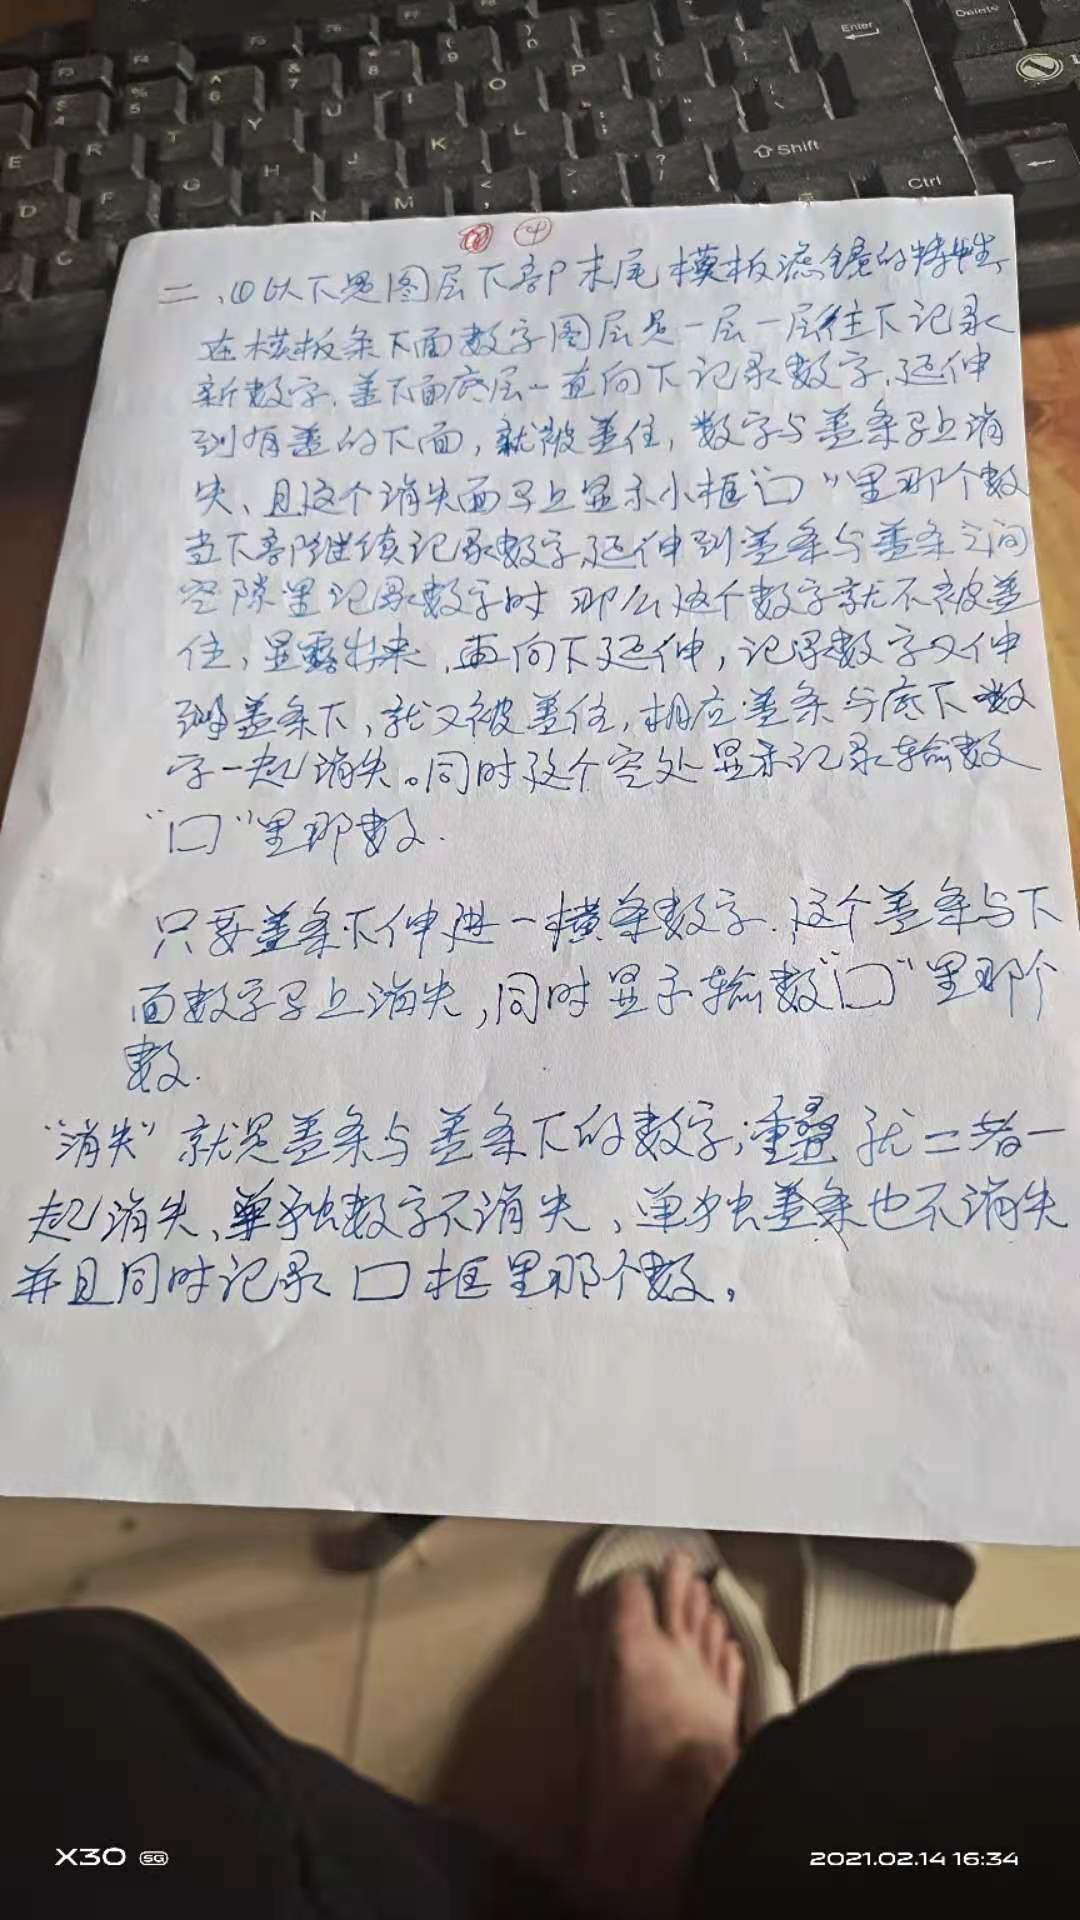 Enter
Delete
F3
F4
F5
F6
F7
F8
$ 4
% 5
^ 6
& 7
* 8
( 9
) 0
E R T Y U I O P
F G H J K L
D
⇧ Shift
C N M < , > . ? /
Ctrl
④
二、(1)以下是图层下部末尾模板滤镜的特性、
在模板条下面数字图层是一层一层往下记录
新数字.盖下面底层一直向下记录数字,延伸
到有盖的下面,就被盖住,数字与盖条马上消
失、且这个消失面马上显示小框"口"里那个数
当下部继续记录数字,延伸到盖条与盖条之间
空隙里记录数字时 那么这个数字就不被盖
住,显露出来,再向下延伸,记录数字又伸
到盖条下,就又被盖住,相应盖条与底下数
字一起消失。同时这个空处显示记录输数
"口"里那数.
只要盖条下伸进一横条数字.这个盖条与下
面数字马上消失,同时显示输数"口"里那个
数.
"消失"就是盖条与盖条下的数字;重叠就二者一
起消失、单独数字不消失、单独盖条也不消失
并且同时记录 口 框里那个数,
X30 5G
2021.02.14 16:34